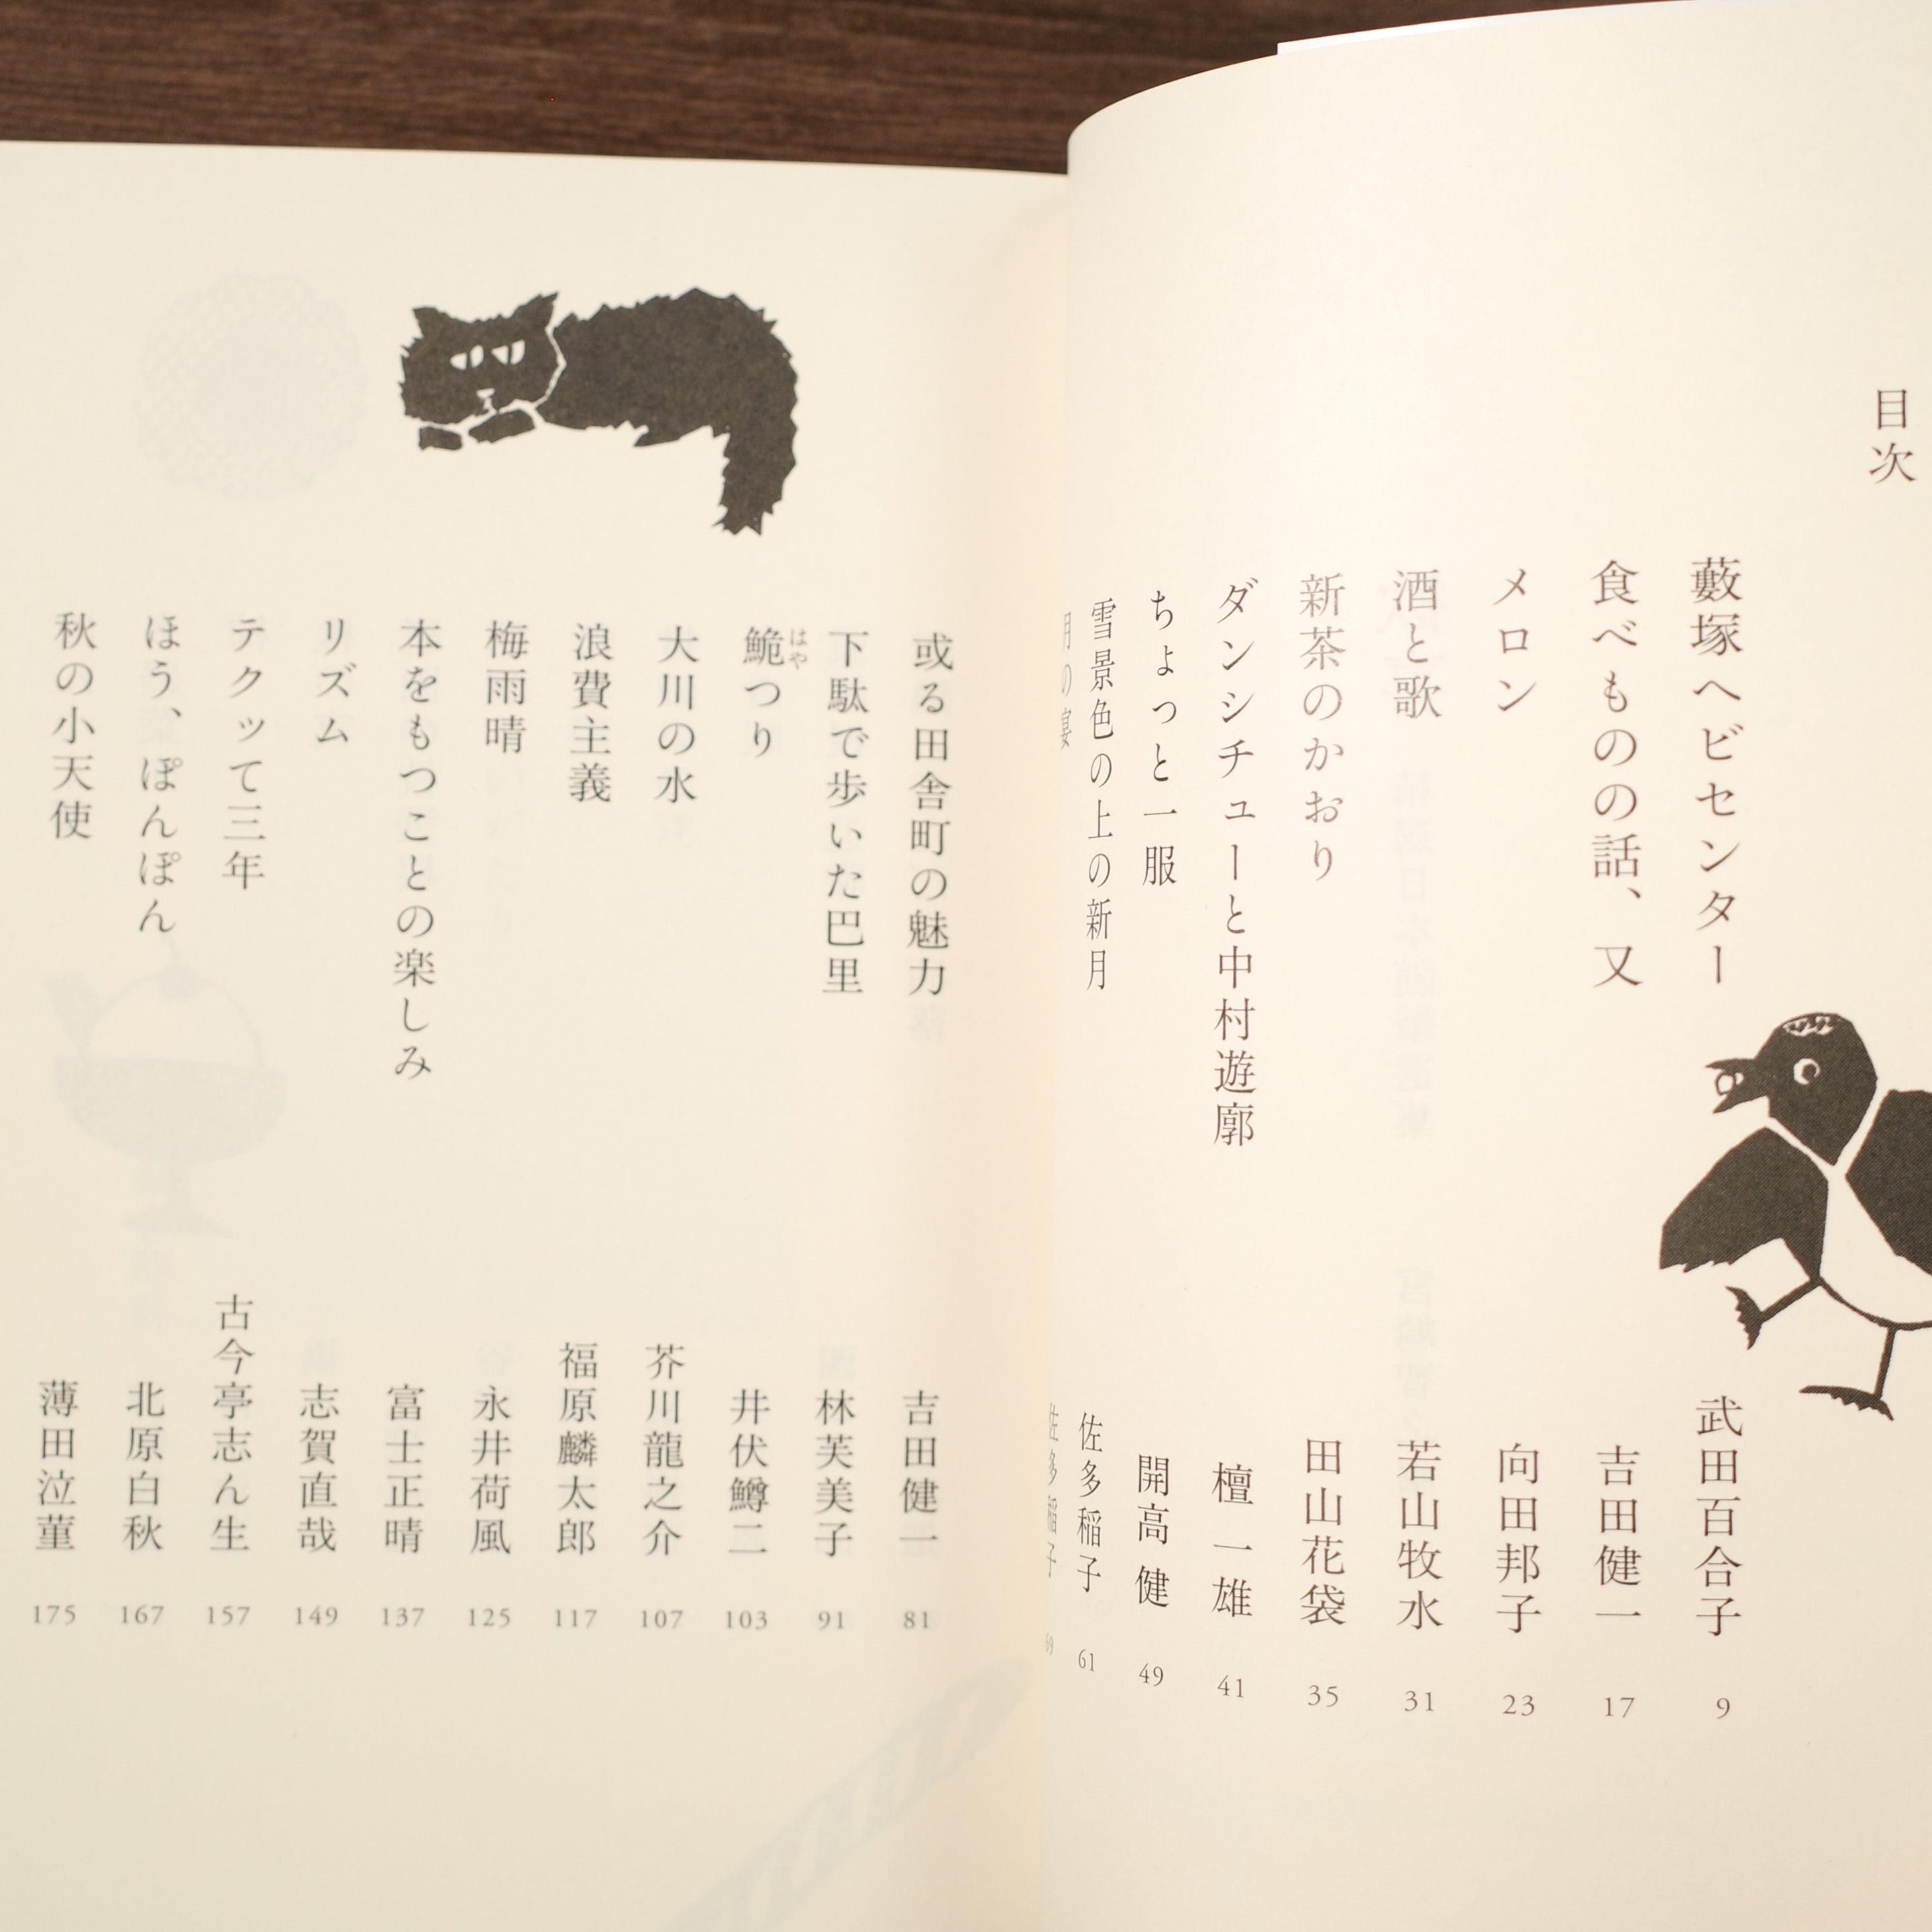 目次
藪塚ヘビセンター 武田百合子 9
食べものの話、又 吉田健一 17
メロン 向田邦子 23
酒と歌 若山牧水 31
新茶のかおり 田山花袋 35
ダンシチューと中村遊廓 檀一雄 41
ちょっと一服 開高健 49
雪景色の上の新月 佐多稲子 61
月の宴 佐多稲子 69
或る田舎町の魅力 吉田健一 81
下駄で歩いた巴里 林芙美子 91
鮠つり はや 井伏鱒二 103
大川の水 芥川龍之介 107
浪費主義 福原麟太郎 117
梅雨晴 永井荷風 125
本をもつことの楽しみ 富士正晴 137
リズム 志賀直哉 149
テクッて三年 古今亭志ん生 157
ほう、ぽんぽん 北原白秋 167
秋の小天使 薄田泣菫 175